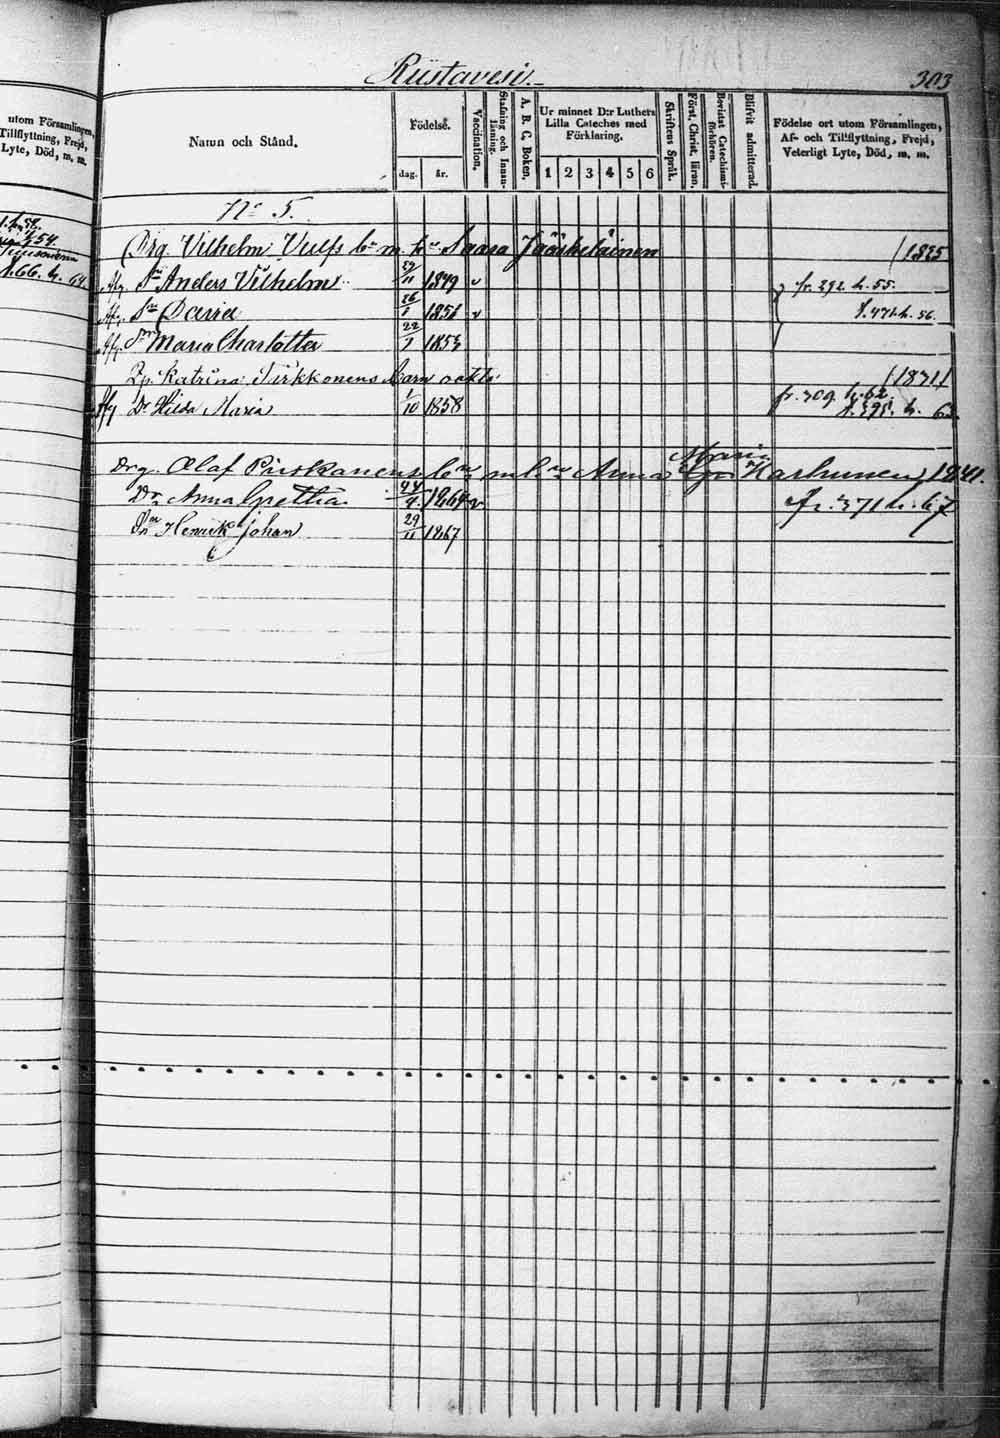 Riistavesi.
303
utom Församlingen,
Tillflyttning, Frejd,
Lyte, Död, m. m.
Namn och Stånd.
Födelse.
dag.
år.
Vaccination.
Stafning och Innanläsning.
A. B. C. Boken.
Ur minnet D:r Luthers
Lilla Cateches med
Förklaring.
1 2 3 4 5 6
Skriftens Språk.
Först. Christ. läran.
Bevistat Catechismiförhören.
Blifvit admitterad.
Födelse ort utom Församlingen,
Af- och Tillflyttning, Frejd,
Veterligt Lyte, Död, m. m.
No 5.
Drg. Vilhelm Vulfs bn m. hu Saara Jääskeläinen (1825
Afg. Sn Anders Vilhelm 29/11 1849 v fr. 292. h. 55.
Afg. Dr Daria 26/1 1851 v f. 471 h. 56.
Afg. Dr Maria Charlotta 22/1 1853
Pp. Katrina Tirkkonens barn oäkta (1831)
Afg Dr Hilda Maria 1/10 1858 fr. 309. h. 62.
f. 395. h.
Maria
Drg. Olaf Piiskanens bn m hu Anna Karhunen 1841.
Dr Anna Gretha 1864 v fr. 371 h. 67
Sn Henrik Johan 29/11 1867